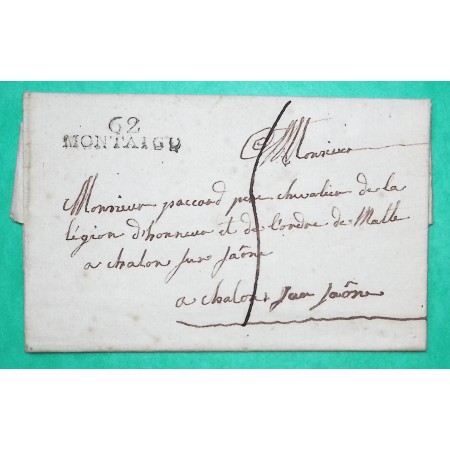 62
MONTAIGU
A Monsieur
Monsieur paccard pere chevalier de la
légion d'honneur et de l'ordre de Malte
a chalon sur saône
a chalon sur saône